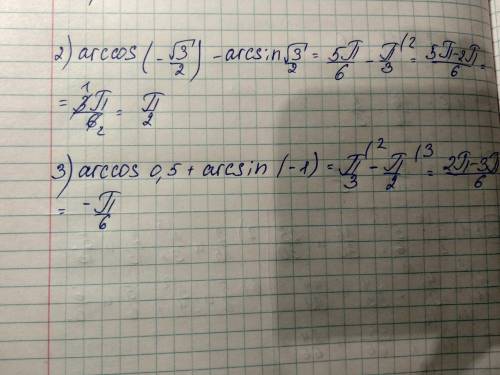 2) arccos (-√3/2) - arcsin √3/2 = 5π/6 - π/3 (2 = 5π-2π/6 =
= 3π/6 1 2 = π/2
3) arccos 0,5 + arcsin (-1) = π/3 (2 - π/2 (3 = 2π-3π/6
= -π/6